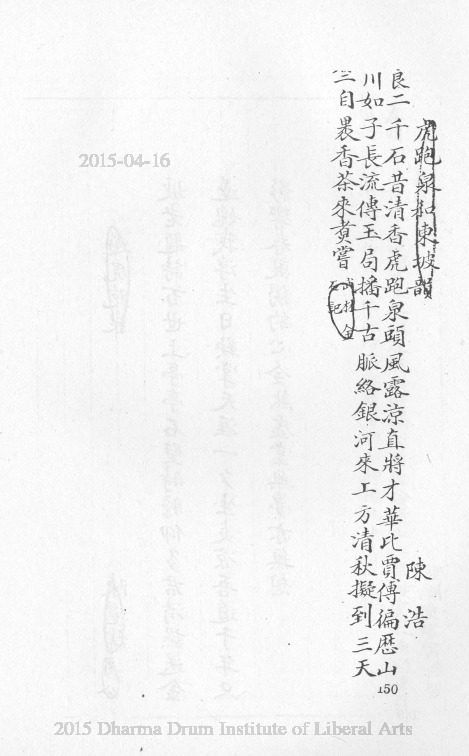 2015-04-16
虎跑泉和東坡韻
陳浩
良二千石昔清香虎跑泉頭風露涼直將才華比賈傅徧歷山
川如子長流傳玉局播千古脈絡銀河來上方清秋擬到三天
竺自裹香茶來煮嘗
武林金
石記
150
2015 Dharma Drum Institute of Liberal Arts